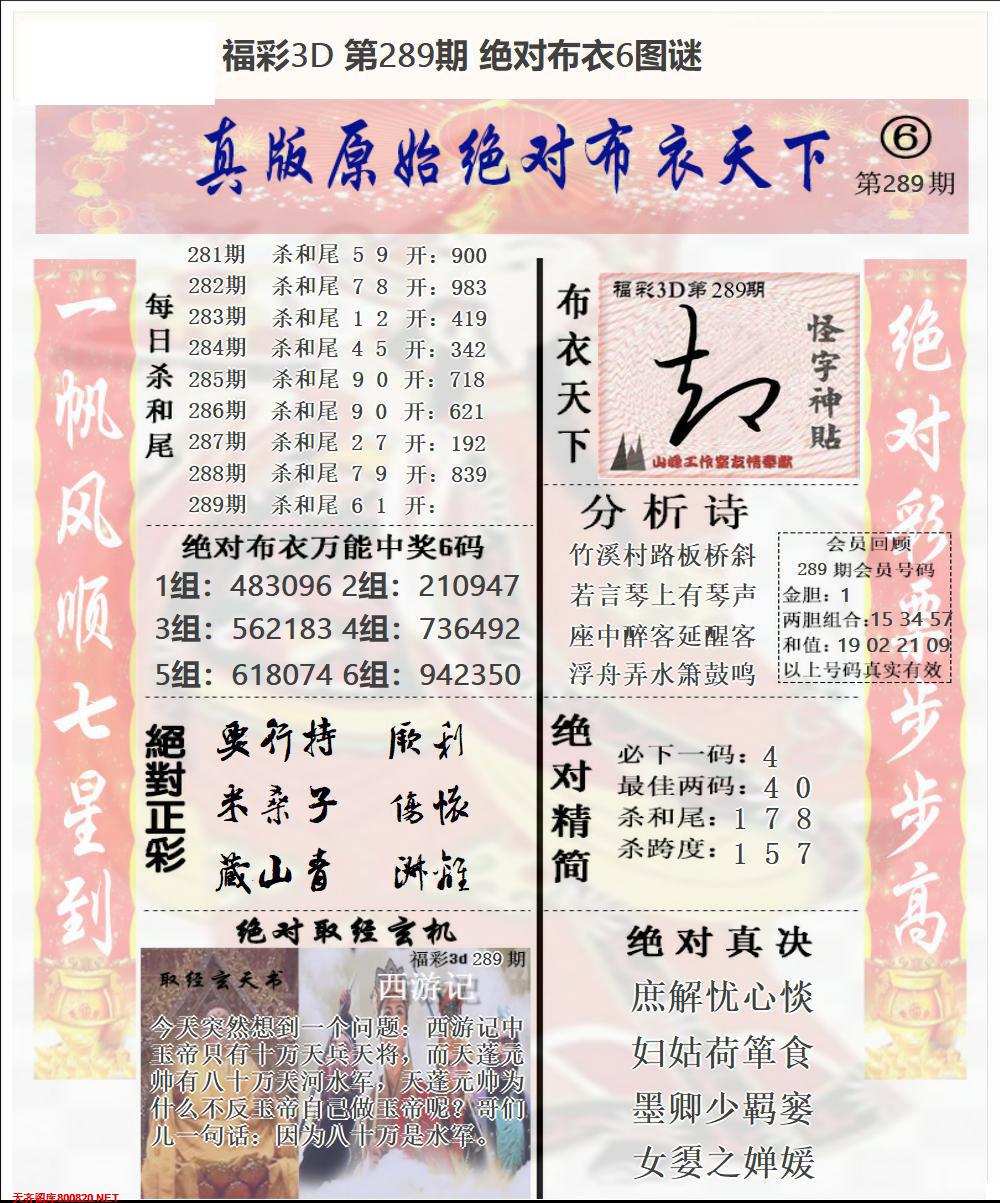 福彩3D 第289期 绝对布衣6图谜
真版原始绝对布衣天下
⑥
第289期
一帆风顺七星到
每日杀和尾
281期 杀和尾 5 9 开：900
282期 杀和尾 7 8 开：983
283期 杀和尾 1 2 开：419
284期 杀和尾 4 5 开：342
285期 杀和尾 9 0 开：718
286期 杀和尾 9 0 开：621
287期 杀和尾 2 7 开：192
288期 杀和尾 7 9 开：839
289期 杀和尾 6 1 开：
绝对布衣万能中奖6码
1组：483096 2组：210947
3组：562183 4组：736492
5组：618074 6组：942350
絕對正彩
要行持
米桑子 傷懷
藏山青
绝对取经玄机
福彩3d 289 期
取经玄天书
西游记
今天突然想到一个问题：西游记中
玉帝只有十万天兵天将，而天蓬元
帅有八十万天河水军，天蓬元帅为
什么不反玉帝自己做玉帝呢？哥们
儿一句话：因为八十万是水军。
布衣天下
福彩3D第289期
怪字神貼
山峰工作室友情奉献
分析诗
竹溪村路板桥斜
若言琴上有琴声
座中醉客延醒客
浮舟弄水箫鼓鸣
会员回顾
289 期会员号码
金胆：1
两胆组合:15 34 57
和值：19 02 21 09
以上号码真实有效
绝对精简
必下一码：4
最佳两码：4 0
杀和尾：1 7 8
杀跨度：1 5 7
绝对真决
庶解忧心惔
妇姑荷箪食
墨卿少羁窭
女媭之婵媛
绝对彩票步步高
天齐图库800820.NET